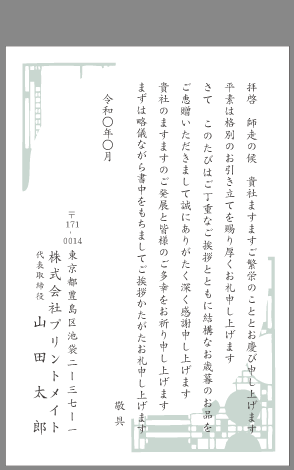 拝啓　師走の候　貴社ますますご繁栄のこととお慶び申し上げます
平素は格別のお引き立てを賜り厚くお礼申し上げます
さて　このたびはご丁重なご挨拶とともに結構なお歳暮のお品を
ご恵贈いただきまして誠にありがたく深く感謝申し上げます
貴社のますますのご発展と皆様のご多幸をお祈り申し上げます
まずは略儀ながら書中をもちましてご挨拶かたがたお礼申し上げます
敬具
令和〇年〇月
〒171-0014
東京都豊島区池袋二ー三七ー一
株式会社プリントメイト
代表取締役　山田太郎